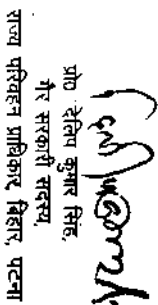 प्रो० दिलीप कुमार सिंह,
गैर सरकारी सदस्य,
राज्य परिवहन प्राधिकार, बिहार, पटना